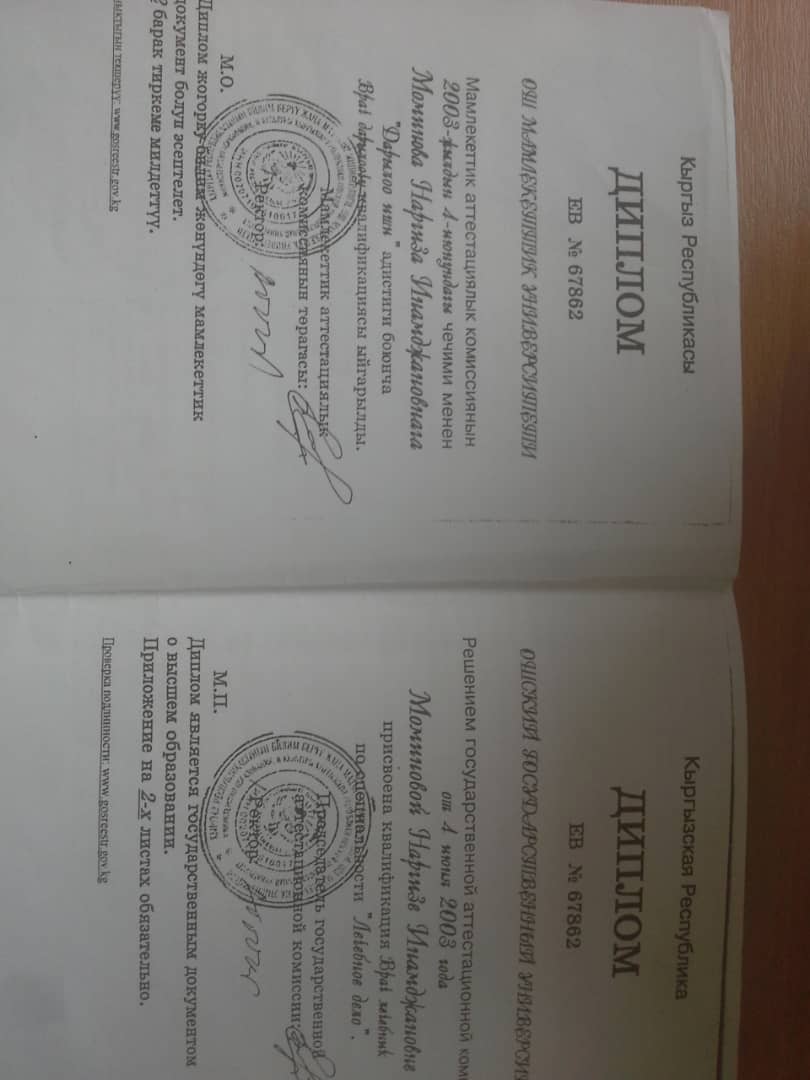 Кыргыз Республикасы
ДИПЛОМ
ЕВ № 67862
ОШ МАМЛЕКЕТТИК УНИВЕРСИТЕТИ
Мамлекеттик аттестациялык комиссиянын
2003-жылдын 4-июнундагы чечими менен
Моминова Наргиза Инамджановнага
"Дарылоо иши" адистиги боюнча
Врач дарылоочу квалификациясы ыйгарылды.
Мамлекеттик аттестациялык
комиссиянын төрагасы:
Ректор:
М.О.
Диплом жогорку билим жөнүндөгү мамлекеттик
документ болуп эсептелет.
барак тиркеме милдеттүү.
текшерүү: www.gosreestr.gov.kg
Кыргызская Республика
ДИПЛОМ
ЕВ № 67862
ОШСКИЙ ГОСУДАРСТВЕННЫЙ
Решением государственной аттестационной
от 4 июня 2003 года
Моминовой Наргизе Инамджановне
присвоена квалификация Врач лечебник
по специальности "Лечебное дело".
Председатель государственной
аттестационной комиссии:
Ректор:
М.П.
Диплом является государственным документом
о высшем образовании.
Приложение на 2-х листах обязательно.
Проверка подлинности: www.gosreestr.gov.kg